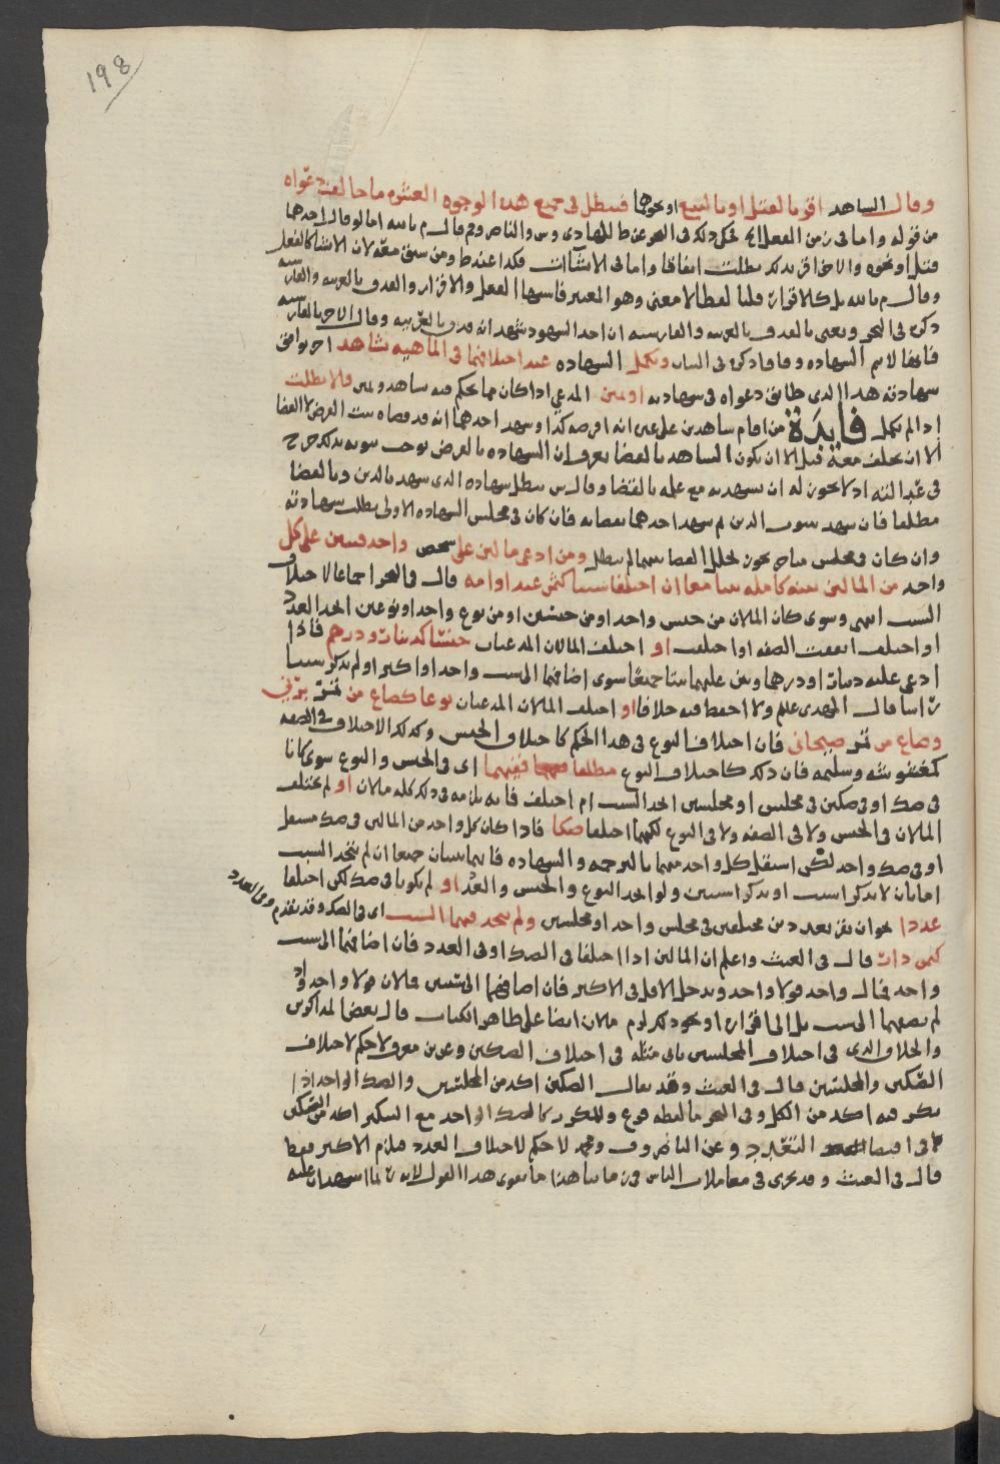 198
وقال الشاهد اقر بالقتل او بالبيع او نحوها فيبطل في جميع هذه الوجوه العشره ما خالفت دعواه
من قوله واما في زمن الفعل والناصر وم قال م بالله اما لو قال احدهما
قتل او نحوه والاخر اقر بذلك بطلت اتفاقا واما في الانشاآت فكذا عند ط ومن سبق معه لان الانشا كالفعل
وقال م بالله بل كالاقرار قلنا لفظا لا معنى وهو المعتبر فاشبها الفعل والاقرار والقذف بالعربيه والفارسيه
ذكره في البحر ويعني بالقذف بالعربيه والفارسيه ان احد الشهود شهد انه قذف بالعربيه وقال الاخر بالفارسيه
فاتفقا لا تتم الشهاده وفاقا ذكره في البيان وتكمل الشهاده عند اختلافهما في الماهيه بشاهد اخر يوافق
شهادته هذا الذي طابق دعواه في شهادته او يمين المدعي اذا كان مما يحكم فيه بشاهد ويمين والا بطلت
اذا لم تكمل فايدة من اقام شاهدين على غيره انه اقرضه كذا وشهد احدهما انه قد قضاه ثبت القرض لا القضا
الا ان يحلف معه قيل الا ان يكون الشاهد بالقضا يعرف ان الشهاده بالقرض توجب ثبوته بذلك جرح
في عدالته اذ لا يجوز له ان يشهد به مع علمه بالقضا وقال س تبطل شهاده الذي شهد بالدين وبالقضا
مطلقا فان شهد بثبوت الدين ثم شهد احدهما بقضايه فان كان في مجلس الشهاده الاولى بطلت شهادته
وان كان في مجلس متاخر يجوز تخلل القضا بينهما لم تبطل ومن ادعى مالين على شخص واحد فبين على كل
واحد من المالين بينه كامله ثبتا معا ان اختلفا سببا كثمن عبد او امه قال في البحر اجماعا لاختلاف
السبب انتهى وسوى كان المالان من جنس واحد او من جنسين او من نوع واحد او نوعين اتحد العدد
او اختلف اتفقت الصفه او اختلفت او اختلف المالان المدعيان جنسا كدينار ودرهم فاذا
ادعى عليه دينارا ودرهما وبين عليهما ثبتا جميعا سوى اضافهما الى سبب واحد او اكثر او لم يذكر سببا
راسا قال المهدي علم ولا احفظ فيه خلافا او اختلف المالان المدعيان نوعا كصاع من تمر برني
وصاع من تمر صيحاني فان اختلاف النوع في هذا الحكم كاختلاف الجنس وكذلك الاختلاف في الصفه
كمغشوشه وسليمه فان ذلك كاختلاف النوع مطلقا فيهما اي في الجنس والنوع سوى كانا
في صك او في صكين في مجلس او مجلسين اتحد السبب ام اختلف فانه يلزمه في ذلك كله مالان او لم يختلف
المالان في الجنس ولا في الصفه ولا في النوع لكنهما اختلفا صكا فاذا كان كل واحد من المالين في صك مستقل
او في صك واحد لكن استقل كل واحد منهما بالترجمه والشهاده فانهما يثبتان جميعا ان لم يتحد السبب
اما بان لا يذكرا سبب او يذكرا سببين ولو اتحد النوع والجنس والعدد او لم يكونا في صك لكن اختلفا
عددا نحو ان يقر بعددين مختلفين في مجلس واحد او مجلسين ولم يتحد فيهما السبب اي في الصك وقد تقدم وفي العدد
كثمن دار قال في الغيث واعلم ان المالين اذا اختلفا في الصك او في العدد فان اضافهما الى سبب
واحد فمال واحد قولا واحدا ويدخل الاقل في الاكثر فان اضافهما الى شيئين فمالان قولا واحدا واذ
لم يضفهما الى سبب بل الى اقراره او نحو ذلك لزم مالان ايضا على ظاهر الكتاب قال بعض المذاكرين
والخلاف الذي في اختلاف المجلسين ياتي مثله في اختلاف الصكين وعن بن معرف لا حكم لاختلاف
الصكين والمجلسين قال في الغيث وقد يقال الصكين اكد من المجلسين والصك الواحد اذا
تكرر فيه اكد من الكل وفي البحر ما لفظه فرع وللمكرر كالصك الواحد مع السكر اكد من الصكين
في اقتضا التعدد وعن الناصر وف وم لا حكم لاختلاف العدد فيلزم الاكثر فقط
قال في الغيث وقد يجري في معاملات الناس في زماننا هذا ما يقوي هذا القول لانه ربما اشهدنا عليه